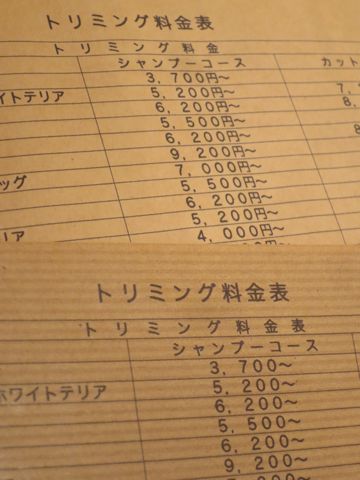 トリミング料金表
トリミング料金
シャンプーコース カット
3,700円〜
イトテリア 5,200円〜 7,
6,200円〜 8,
5,500円〜
6,200円〜 8
9,200円〜
7,000円〜
ッグ 5,500円〜
6,200円〜
5,200円〜
リア 4,000円〜
トリミング料金表
トリミング料金表
シャンプーコース
3,700〜
ホワイトテリア 5,200〜
6,200〜
5,500〜
6,200〜
9,200〜